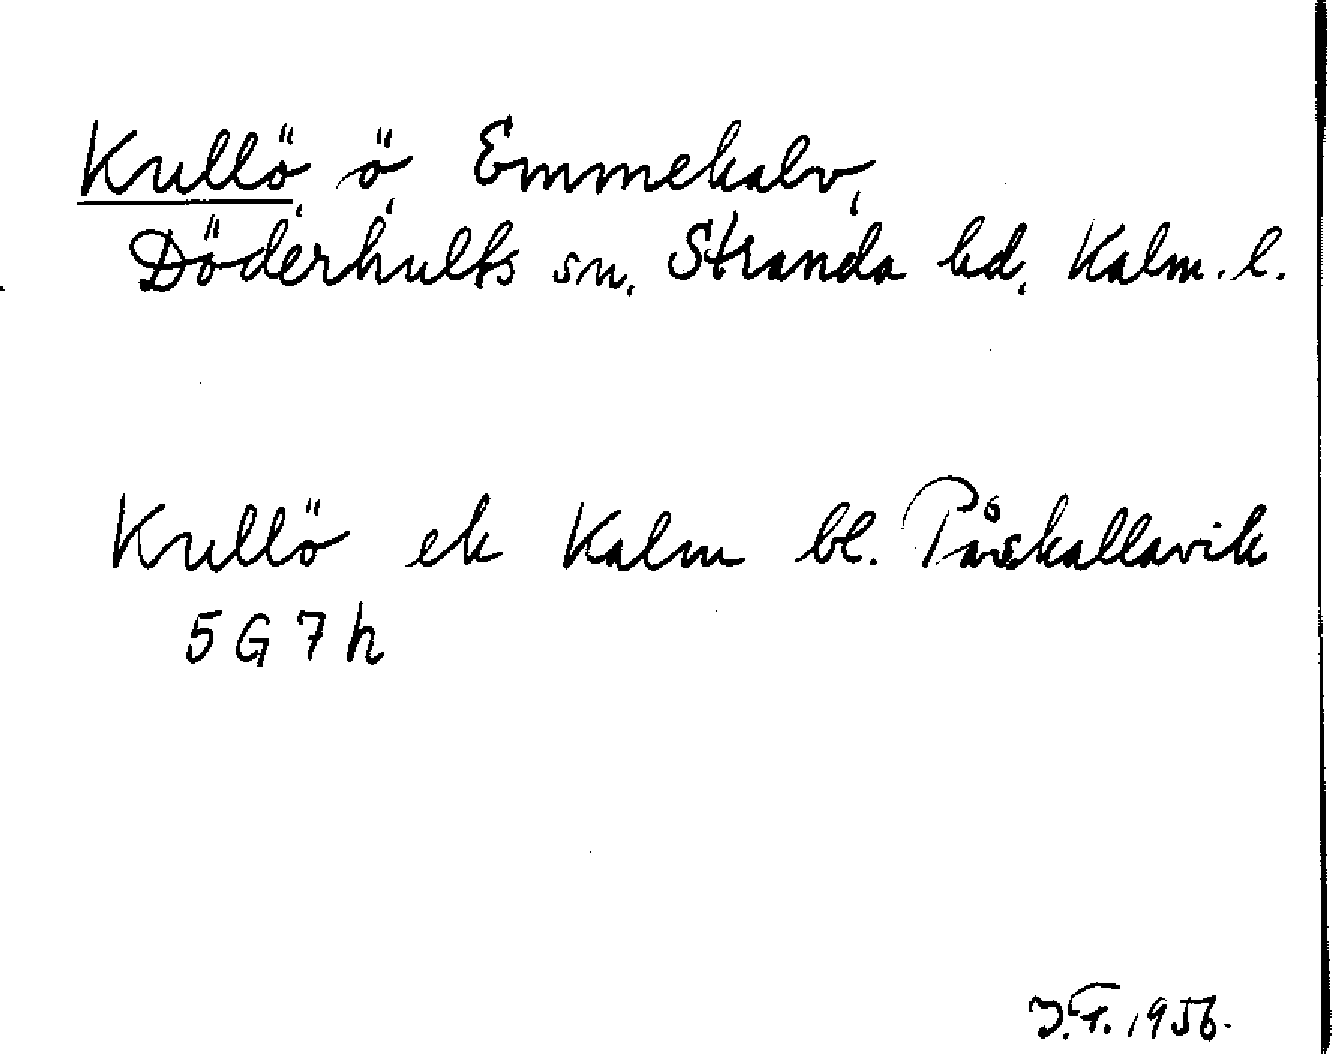 Kullö, ö, Emmekalv,
Döderhults sn, Stranda hd, Kalm. l.
Kullö ek Kalm bl. Påskallavik
5 G 7 h
J.F. 1956.